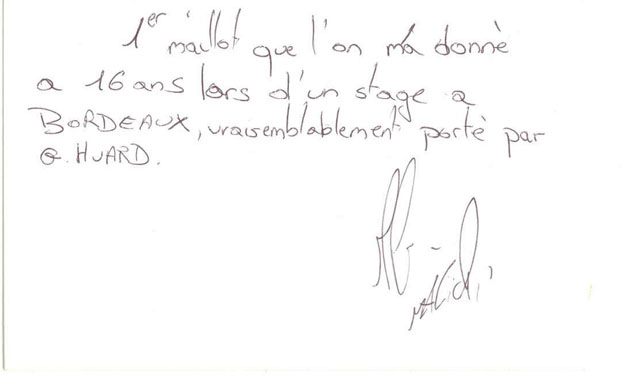 1er maillot que l'on m'a donné
a 16 ans lors d'un stage a
BORDEAUX, vraisemblablement porté par
G. HUARD.